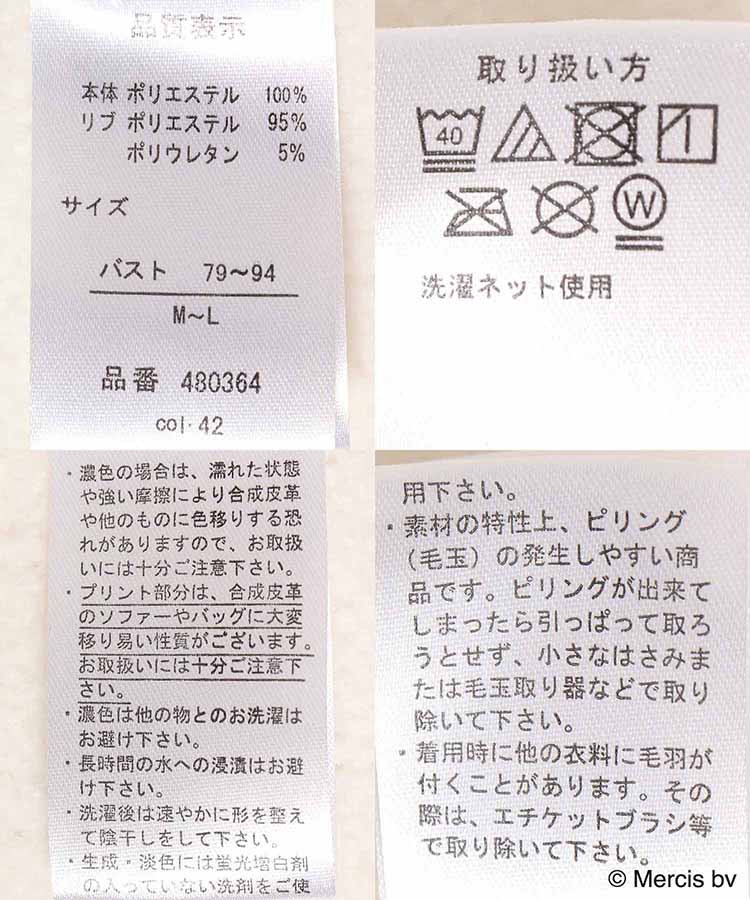 品質表示
本体 ポリエステル 100%
リブ ポリエステル 95%
ポリウレタン 5%
サイズ
バスト 79〜94
M〜L
品番 480364
col·42
取り扱い方
40
W
洗濯ネット使用
・濃色の場合は、濡れた状態
や強い摩擦により合成皮革
や他のものに色移りする恐
れがありますので、お取扱
いには十分ご注意下さい。
・プリント部分は、合成皮革
のソファーやバッグに大変
移り易い性質がございます。
お取扱いには十分ご注意下
さい。
・濃色は他の物とのお洗濯は
お避け下さい。
・長時間の水への浸漬はお避
け下さい。
・洗濯後は速やかに形を整え
て陰干しをして下さい。
・生成・淡色には蛍光増白剤
の入っていない洗剤をご使
用下さい。
・素材の特性上、ピリング
(毛玉)の発生しやすい商
品です。ピリングが出来て
しまったら引っぱって取ろ
うとせず、小さなはさみま
たは毛玉取り器などで取り
除いて下さい。
・着用時に他の衣料に毛羽が
付くことがあります。その
際は、エチケットブラシ等
で取り除いて下さい。
© Mercis bv